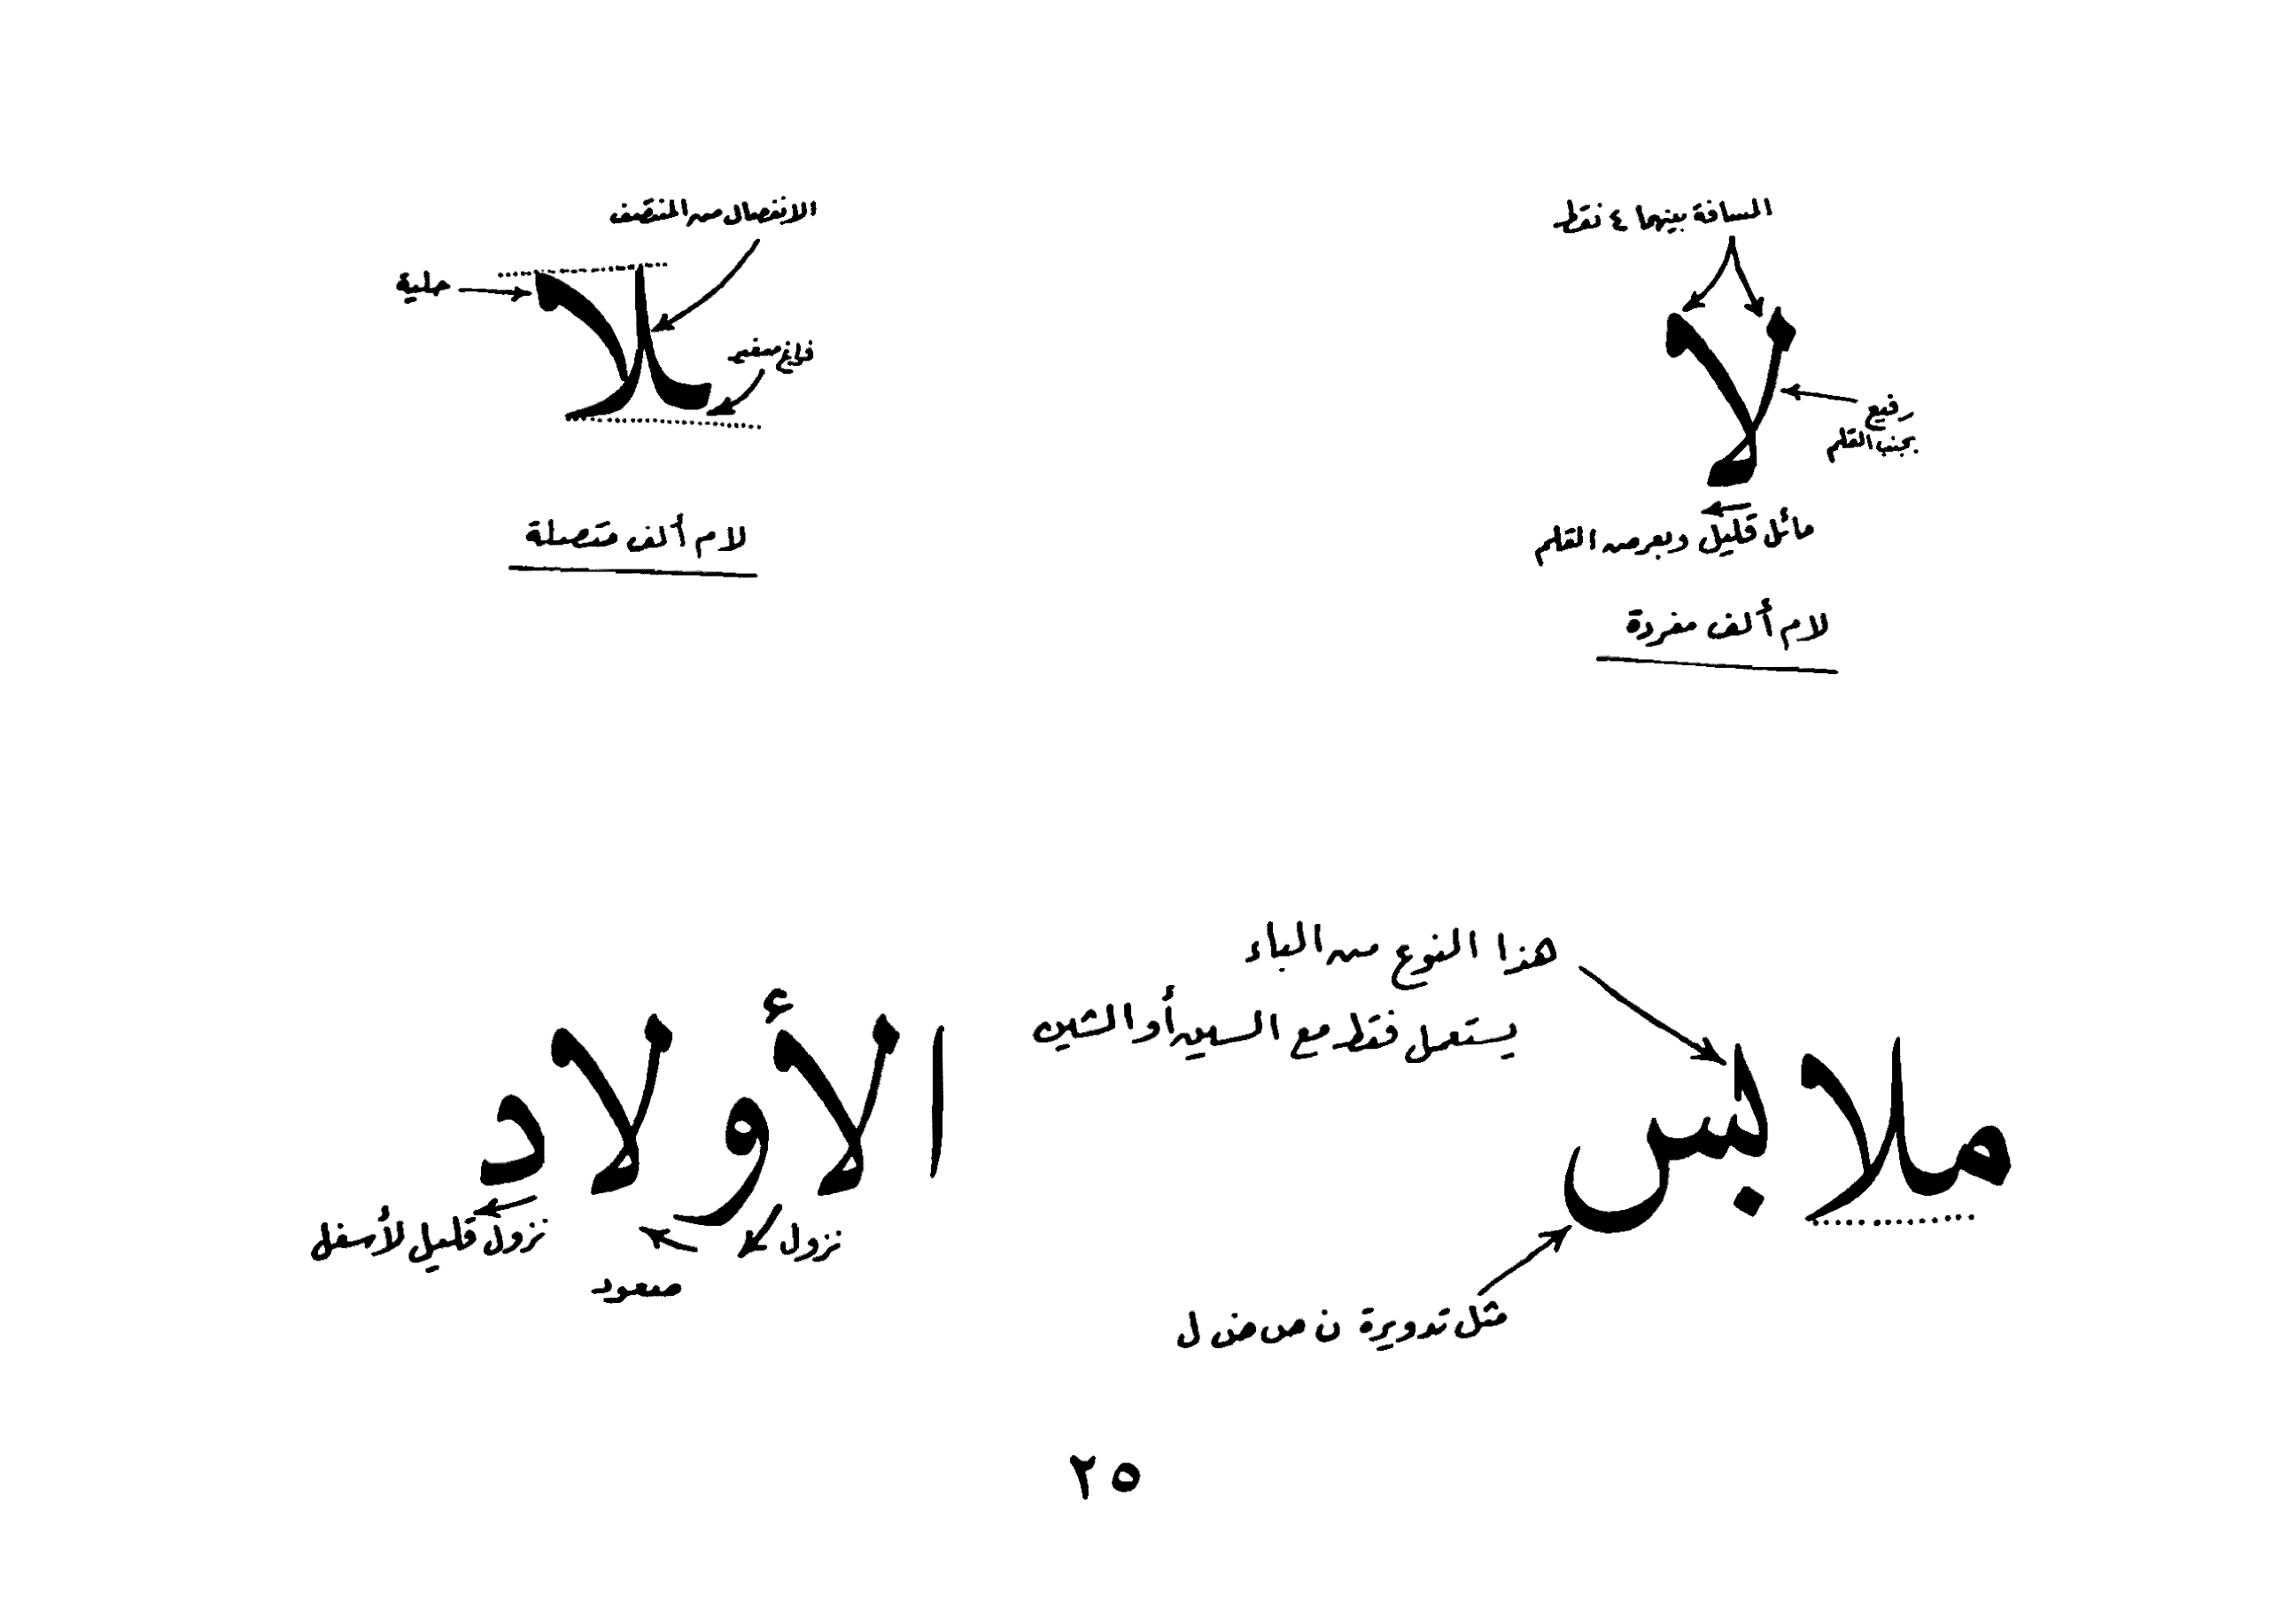 المسافة بينهما ٤ نقط
لا
رفيع
بجنب القلم
مائل قليل وبعرض القلم
لام ألف مفردة
الانفصال من المنتصف
حلية
لا
فراغ صغير
لام ألف متصلة
هذا النوع من الباء
يستعمل فقط مع السين أو الشين
ملابس
مثل تدويرة ن ص ض ل
الأولاد
نزول
صعود
نزول قليل لأسفل
٢٥